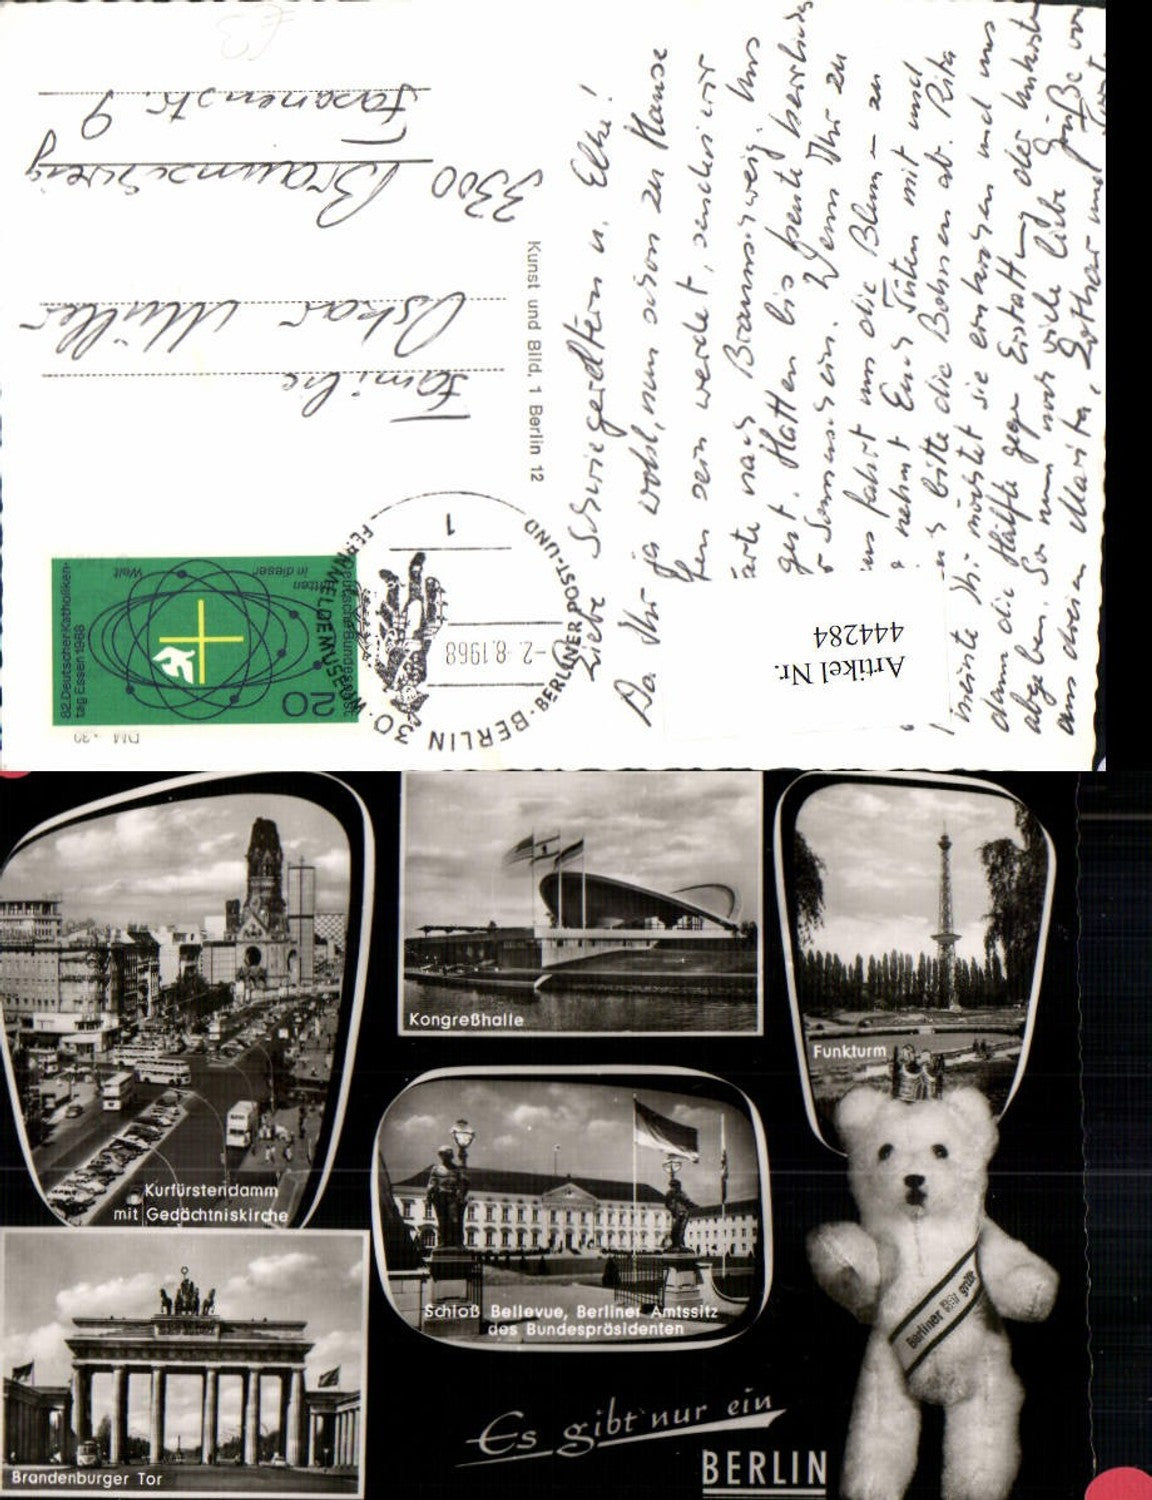 Liebe Schwiegereltern u. Elke!
Da Ihr ja wohl, nun schon zu Hause
sein werdet, senden wir
nach Braunschweig. Uns
Hatten bis heute herrliches
Sonnenschein. Wenn Ihr zu
uns fahrt um die Blumen zu
nehmt Euch Tüten mit und
bitte die Bohnen ab. Rita
meinte Ihr möchtet sie einkochen und uns
dann die Hälfte gegen Erstattung der Unkosten
abgeben. So nun noch viele liebe Grüße von
uns dreien Marita, Lothar und
Artikel Nr.
444284
Kunst und Bild, 1 Berlin 12
1
-2.-8.1968
BERLIN 30
BERLIN · BERLINER POST- UND FERNMELDEMUSEUM
82. Deutscher Katholiken-
tag Essen 1968
Mitten
in dieser
Welt
Deutsche Bundespost
20
Familie
Oskar Müller
3300 Braunschweig
Fasanenstr. 9
Kurfürstendamm
mit Gedächtniskirche
Kongreßhalle
Funkturm
Schloß Bellevue, Berliner Amtssitz
des Bundespräsidenten
Brandenburger Tor
Berliner Bär grüßt
Es gibt nur ein
BERLIN